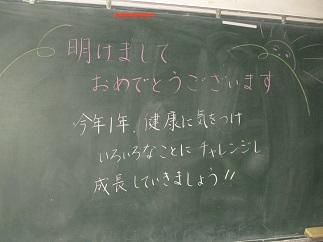 明けまして
おめでとうございます
今年1年、健康に気をつけ
いろいろなことにチャレンジし
成長していきましょう!!